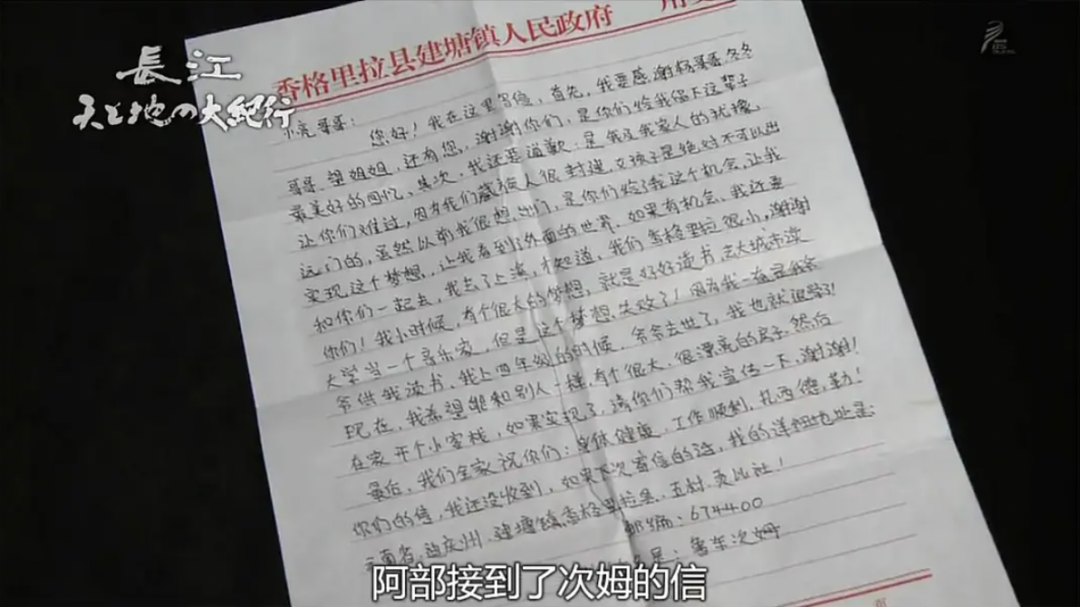 長江
天と地の大紀行
香格里拉县建塘镇人民政府
小亮哥哥：
您好！我在这里写信，首先，我要感谢杨哥哥、冬冬
哥哥、望姐姐，还有您，谢谢你们，是你们给我留下这辈子
最美好的回忆，其次，我还要道歉：是我及我家人的犹豫，
让你们难过，因为我们藏族人很封建，女孩子是绝对不可以出
远门的，虽然以前我很想出门，是你们给了我这个机会，让我
实现这个梦想，让我看到了外面的世界，如果有机会，我还要
和你们一起去，我去了上海，才知道，我们香格里拉很小，谢谢
你们！我小时候，有个很大的梦想，就是好好读书，去大城市读
大学当一个音乐家，但是这个梦想，失败了！因为我一直是我爷
爷供我读书，我上四年级的时候，爷爷去世了，我也就退学了！
现在，我希望能和别人一样，有个很大，很漂亮的房子，然后
在家开个小客栈，如果实现了，请你们帮我宣传一下，谢谢！
最后，我们全家祝你们：身体健康，工作顺利，扎西德勒！
你们的信，我还没收到，如果下次寄信的话，我的详细地址是：
云南省，迪庆州，建塘镇香格里拉县，五村，贡比社！
邮编：674400
次姆
阿部接到了次姆的信